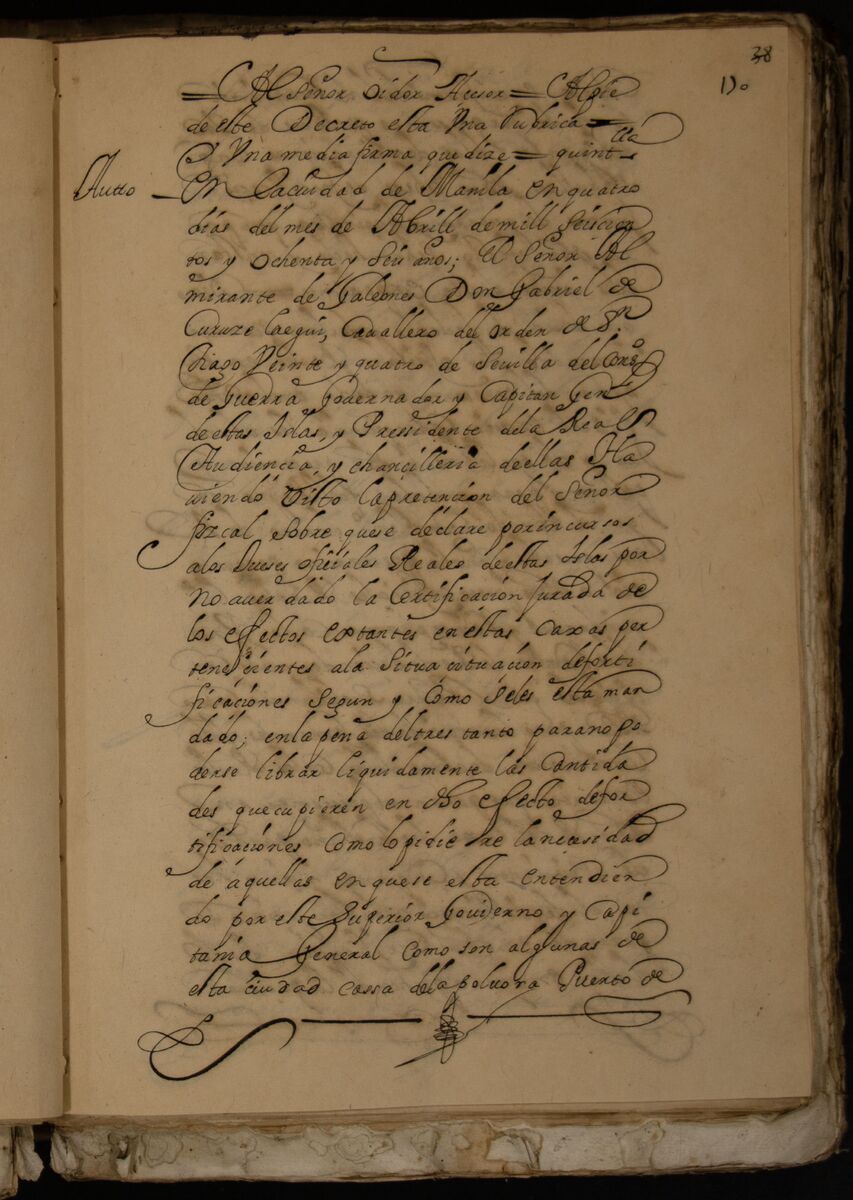 38
= Al Señor oidor Asesor = Alpie
de este Decreto esta Vna Rubrica =
Y Vna media firma que dize = quintlla
Autto — En la ciudad de Manila en quatro
dias del mes de Abrill de mill seiscien
tos y ochenta y seis años; El Señor Al
mirante de Galeones Don Gabriel de
Curuze laegui, Cavallero del orden de Sn.
tiago Veinte y quatro de Sevilla del Conso
de Guerra Governador y Capitan Genl
de estas Islas, y Pressidente dela Real
Audiencia, y chancilleria de ellas Ha
viendo visto lapretencion del Señor
fizcal sobre quese declare porincursos
alos Jueses ofiçiales Reales de estas Islas por
no aver dado la Certificacion Jurada de
los efectos extantes en estas caxas per
teneçientes ala situa cituacion deforti
ficaciones segun y como seles esta man
dado; enlapena deltres tanto paranopo
derse librar liquidamente las cantida
des que cupieren en dho efecto defor
tificaciones como lo pidie re lanecesidad
de aquellas en quese esta entendien
do por este Superior Govierno y Capi
tania General como son algunas de
esta ciudad cassa dela polvora Puerto de